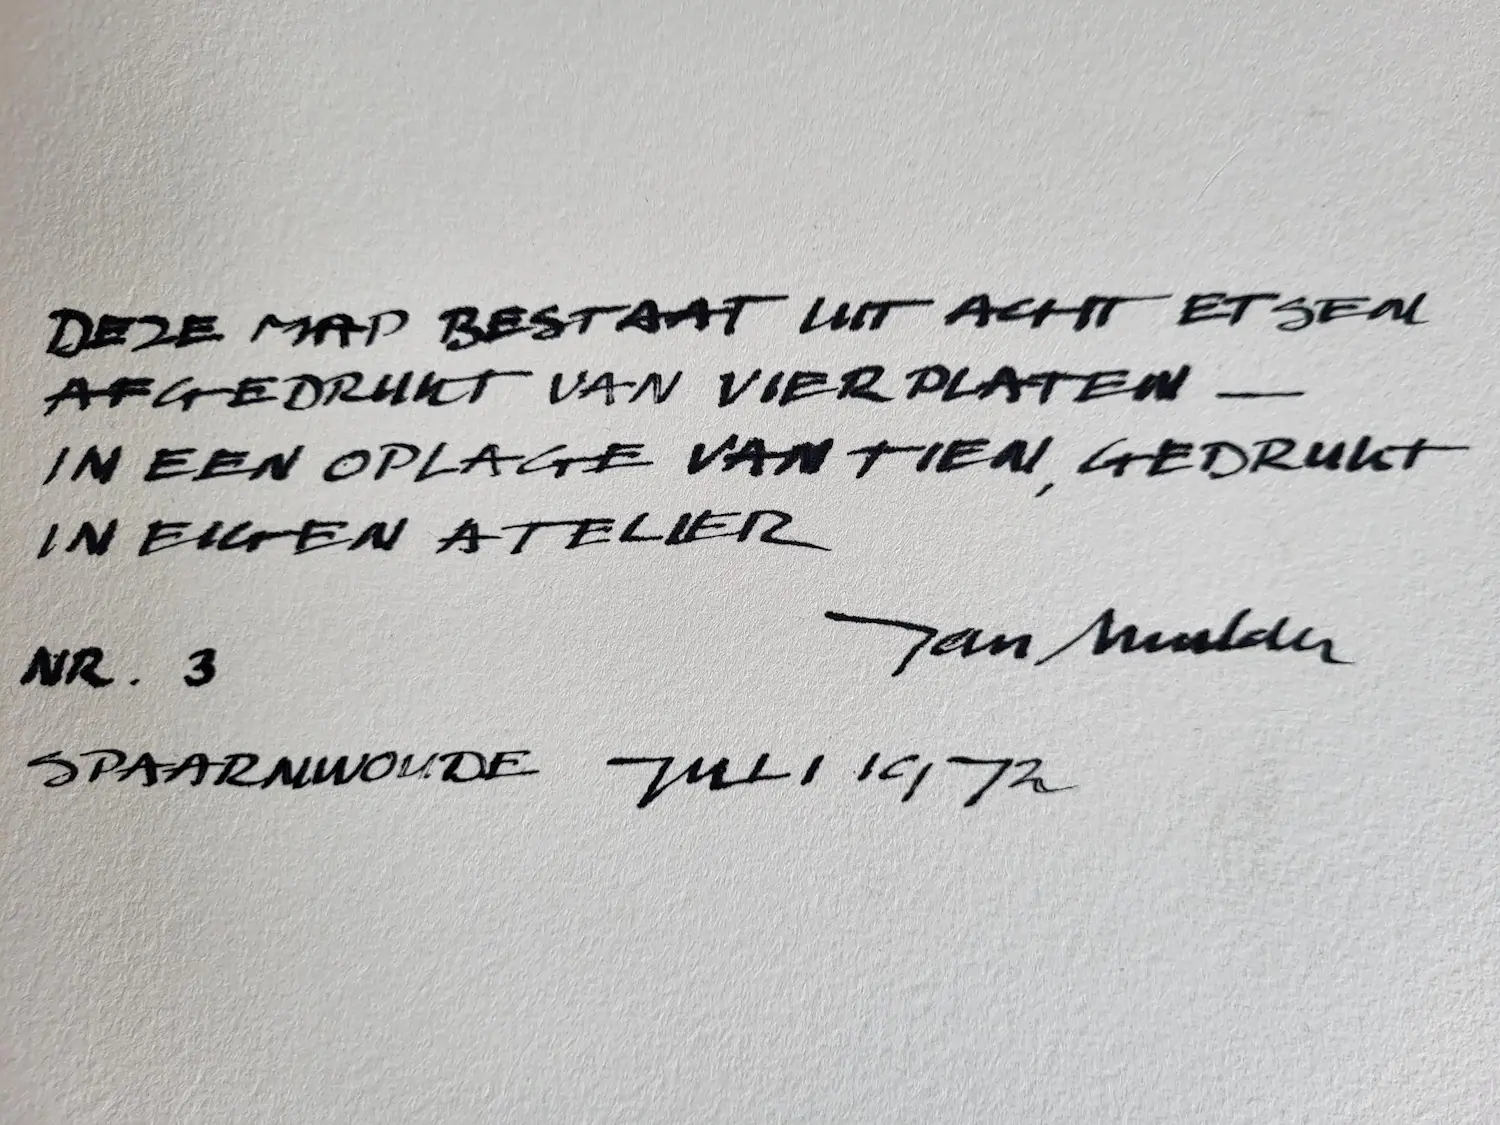 DEZE MAP BESTAAT UIT ACHT ETSEN
AFGEDRUKT VAN VIER PLATEN —
IN EEN OPLAGE VAN TIEN, GEDRUKT
IN EIGEN ATELIER
Jan Mulder
NR. 3
SPAARNWOUDE JULI 1972